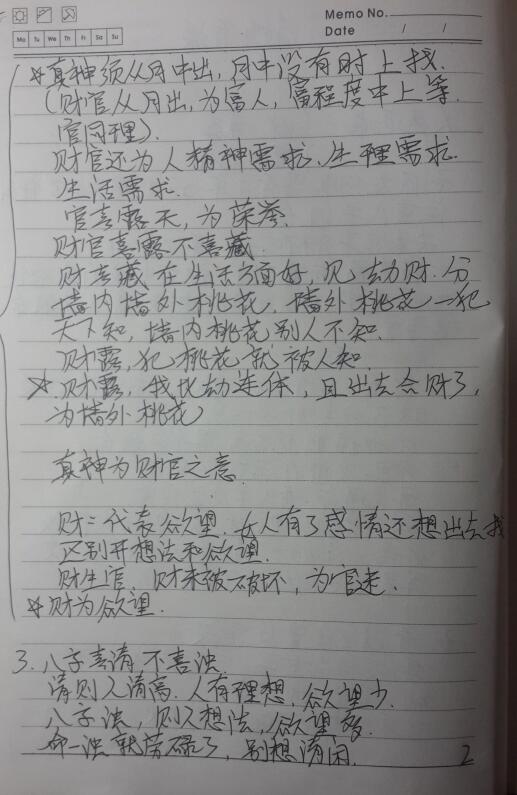 Memo No.
Date / /
Mo Tu We Th Fr Sa Su
☆真神须从月中出，月中没有时上找.
(财官从月出，为富人，富程度中上等.
官同理).
财官还为人精神需求、生理需求.
生活需求.
官喜露天，为荣誉.
财官喜露不喜藏
财喜藏在生活方面好，见劫财.分
墙内墙外桃花，墙外桃花一犯
天下知，墙内桃花别人不知.
财露，犯桃花就被人知.
☆财露，我比劫连体，且出去合财了，
为墙外桃花
真神为财官之意.
财=代表欲望，女人有了感情还想出去找
区别开想法和欲望.
财生官，财未被破坏，为官迷.
☆财为欲望.
3.八字喜清不喜浊.
清则人清高.人有理想，欲望少.
八字浊，则人想法，欲望多.
命一浊就劳碌了，别想清闲.
2